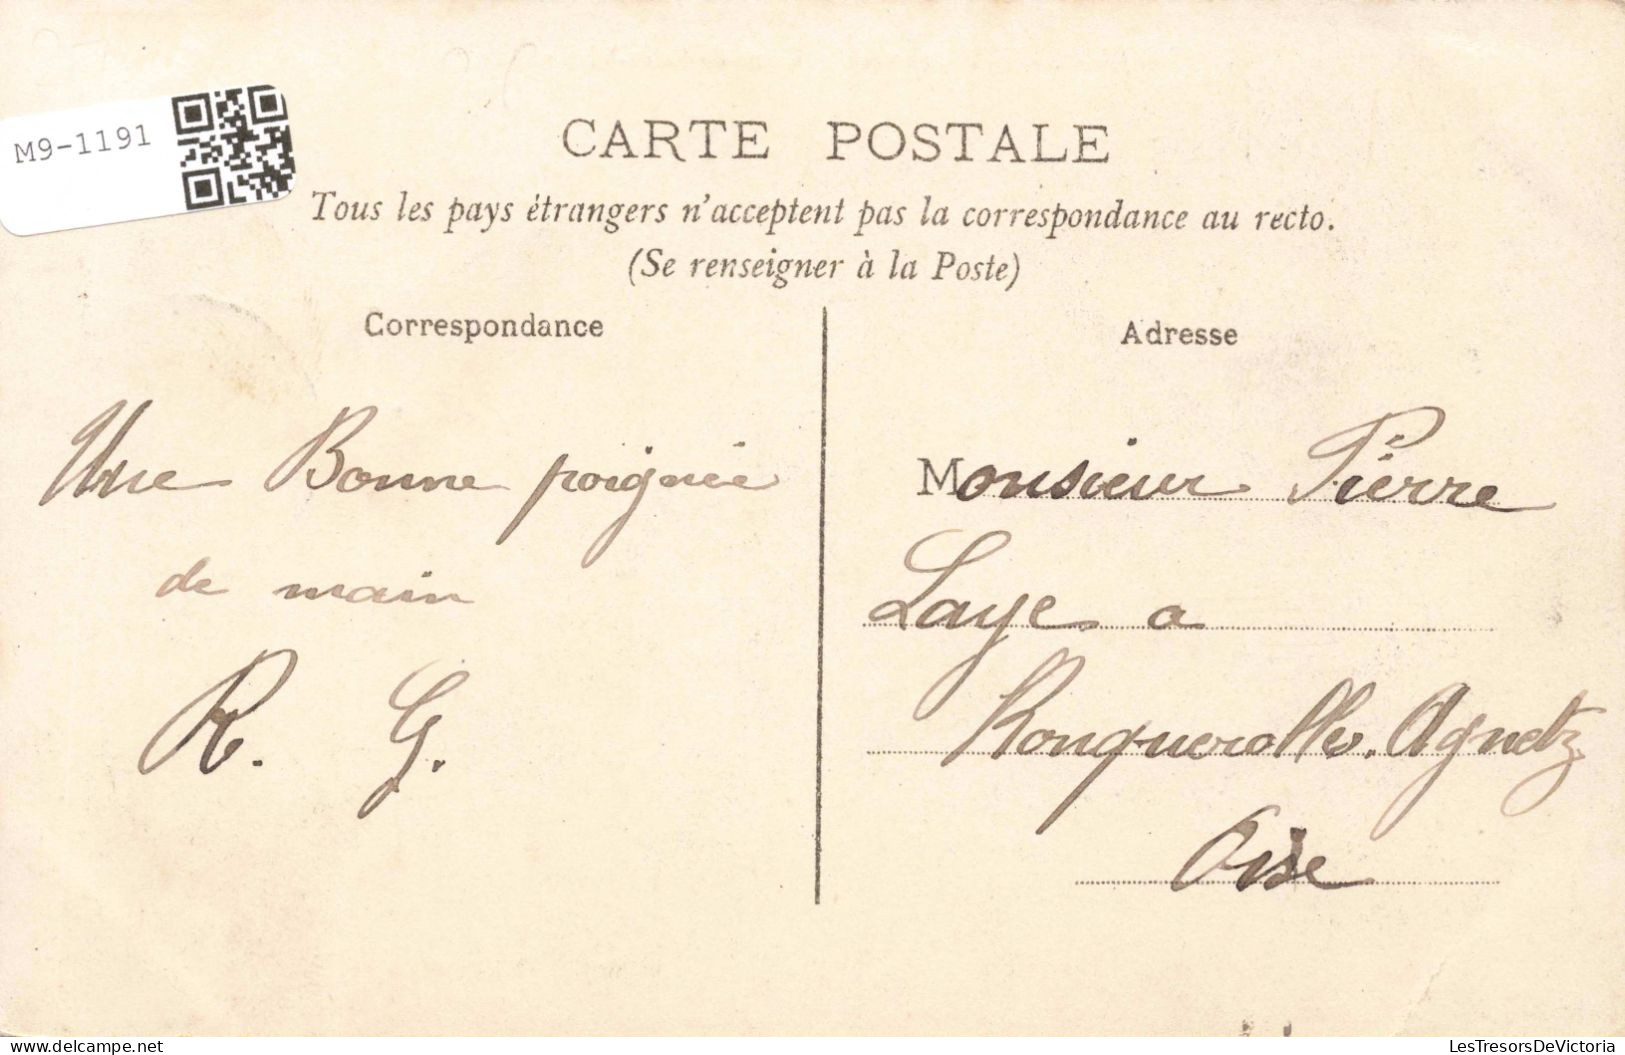 M9-1191
CARTE POSTALE
Tous les pays étrangers n'acceptent pas la correspondance au recto.
(Se renseigner à la Poste)
Correspondance
Une Bonne poignée
de main
R. G.
Adresse
Monsieur Pierre
Laye a
Ronquerolles. Agnetz
Oise
delcampe.net
LesTresorsDeVictoria